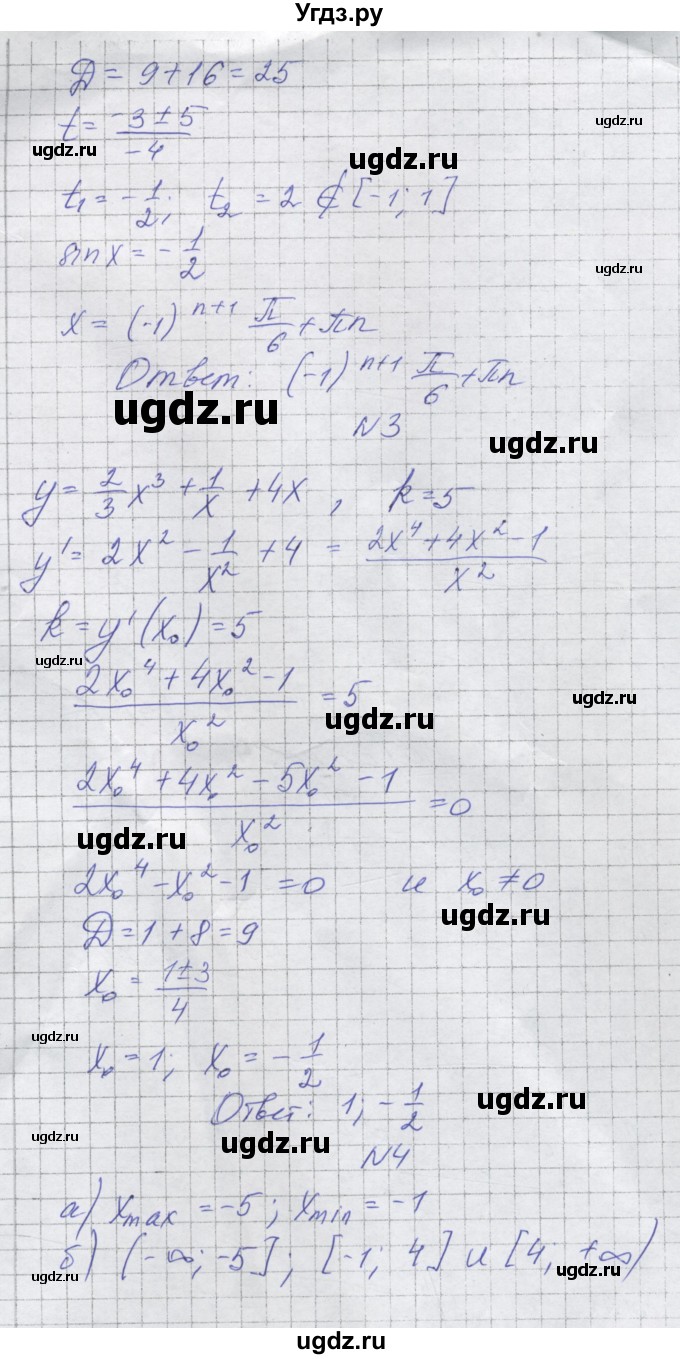 Угдз.ру
Д = 9+16 = 25
t = -3 ± 5 / -4
ugdz.ru
ugdz.ru
ugdz.ru
t₁ = -1/2; t₂ = 2 ∉ [-1; 1]
sin x = -1/2
ugdz.ru
x = (-1)ⁿ⁺¹ π/6 + πn
Ответ: (-1)ⁿ⁺¹ π/6 + πn
ugdz.ru
N3
ugdz.ru
y = 2/3 x³ + 1/x + 4x, k=5
y' = 2x² - 1/x² + 4 = 2x⁴+4x²-1 / x²
k = y'(x₀) = 5
ugdz.ru
2x₀⁴ + 4x₀² - 1 / x₀² = 5
ugdz.ru
ugdz.ru
2x₀⁴ + 4x₀² - 5x₀² - 1 / x₀² = 0
ugdz.ru
2x₀⁴ - x₀² - 1 = 0 и x₀ ≠ 0
ugdz.ru
Д = 1 + 8 = 9
x₀ = 1±3 / 4
ugdz.ru
ugdz.ru
x₀ = 1; x₀ = -1/2
Ответ: 1; -1/2
ugdz.ru
ugdz.ru
ugdz.ru
N4
а) xmax = -5; xmin = -1
б) (-∞; -5]; [-1; 4] и [4; +∞)
ugdz.ru
ugdz.ru
ugdz.ru